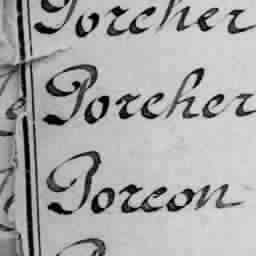 Porcher
Porcher
Porcon